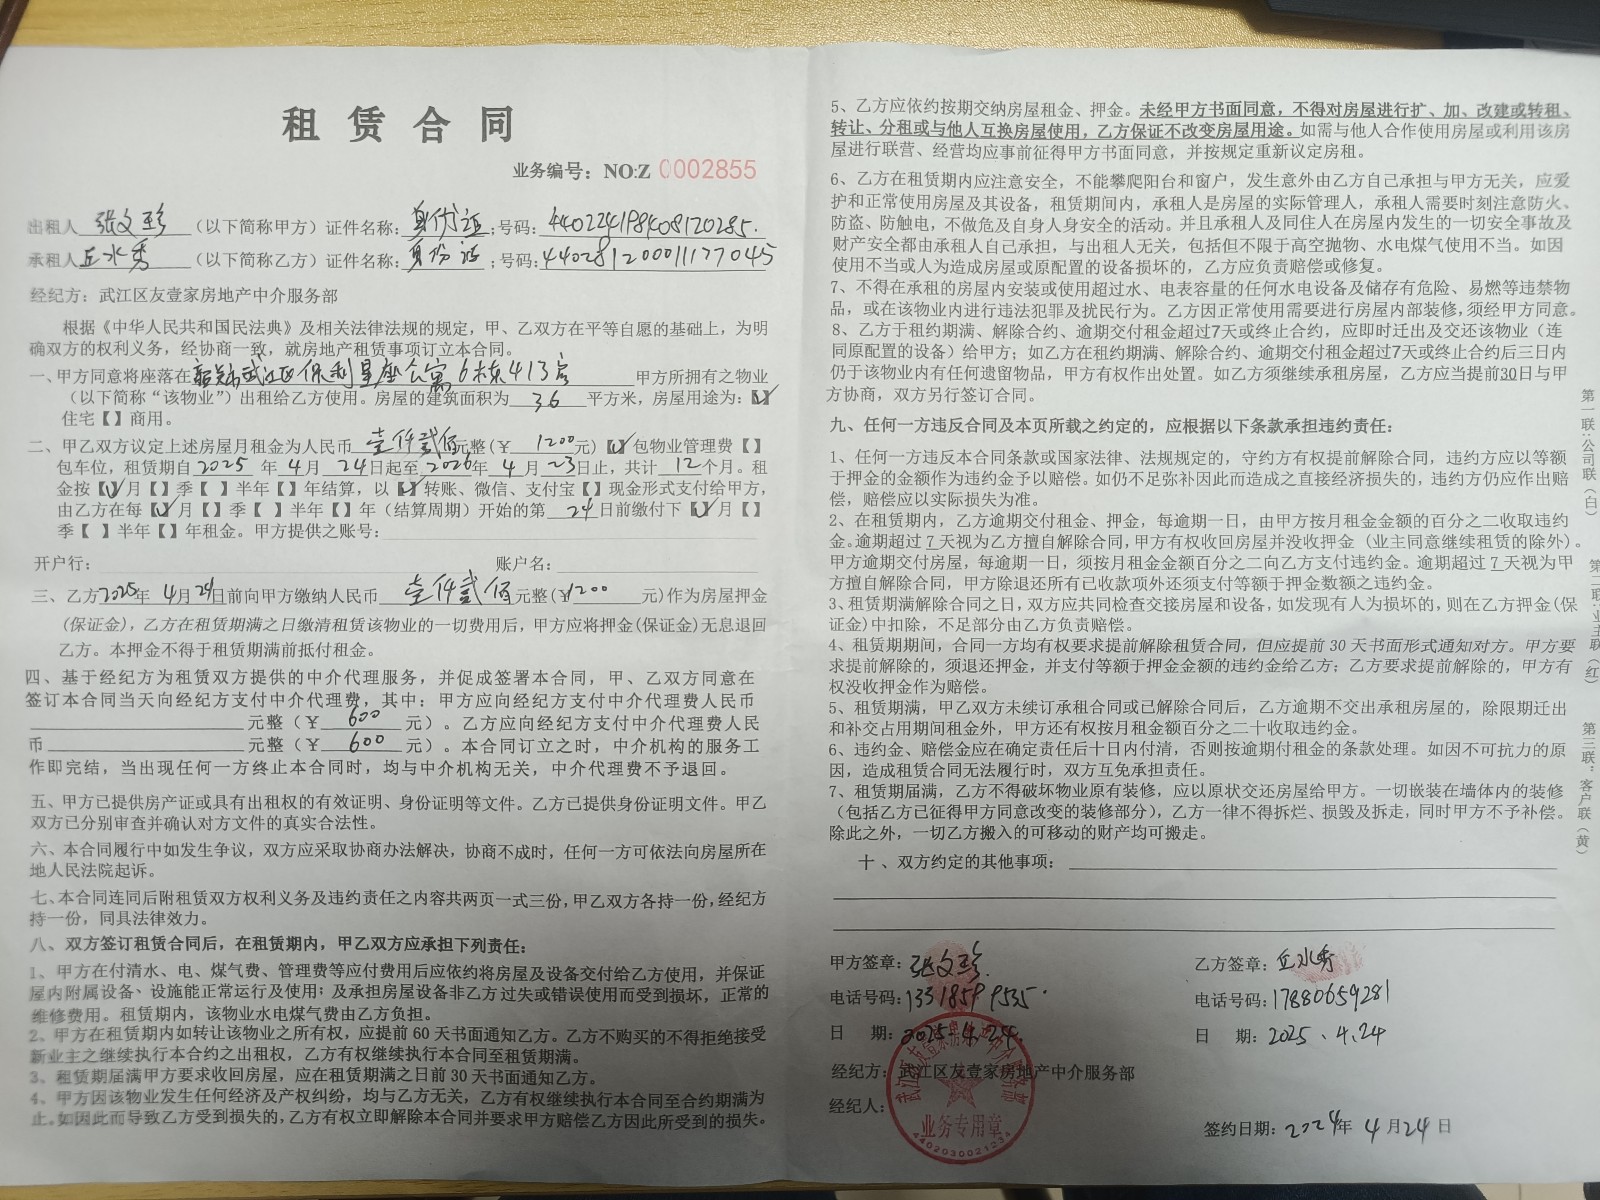 租 赁 合 同
业务编号：NO:Z 0002855
出租人 张文珍 （以下简称甲方）证件名称：身份证；号码：440224198408120285.
承租人 丘水秀 （以下简称乙方）证件名称：身份证；号码：440281200011177045
经纪方：武江区友壹家房地产中介服务部
根据《中华人民共和国民法典》及相关法律法规的规定，甲、乙双方在平等自愿的基础上，为明
确双方的权利义务，经协商一致，就房地产租赁事项订立本合同。
一、甲方同意将座落在韶关市武江区保利星座公寓6栋413房 甲方所拥有之物业
（以下简称“该物业”）出租给乙方使用。房屋的建筑面积为 36 平方米，房屋用途为：【√】
住宅【 】商用。
二、甲乙双方议定上述房屋月租金为人民币 壹仟贰佰元整(￥ 1200元)【√】包物业管理费【 】
包车位，租赁期自2025 年 4月 24日起至2026年 4 月 23日止，共计 12个月。租
金按【√】月【 】季【 】半年【 】年结算，以【√】转账、微信、支付宝【 】现金形式支付给甲方，
由乙方在每【√】月【 】季【 】半年【 】年（结算周期）开始的第 24日前缴付下【√】月【 】
季【 】半年【 】年租金。甲方提供之账号：
开户行： 账户名：
三、乙方2025年 4月24日前向甲方缴纳人民币 壹仟贰佰元整(￥1200 元)作为房屋押金
(保证金)，乙方在租赁期满之日缴清租赁该物业的一切费用后，甲方应将押金(保证金)无息退回
乙方。本押金不得于租赁期满前抵付租金。
四、基于经纪方为租赁双方提供的中介代理服务，并促成签署本合同，甲、乙双方同意在
签订本合同当天向经纪方支付中介代理费，其中：甲方应向经纪方支付中介代理费人民币
元整（￥ 600 元）。乙方应向经纪方支付中介代理费人民
币 元整（￥ 600 元）。本合同订立之时，中介机构的服务工
作即完结，当出现任何一方终止本合同时，均与中介机构无关，中介代理费不予退回。
五、甲方已提供房产证或具有出租权的有效证明、身份证明等文件。乙方已提供身份证明文件。甲乙
双方已分别审查并确认对方文件的真实合法性。
六、本合同履行中如发生争议，双方应采取协商办法解决，协商不成时，任何一方可依法向房屋所在
地人民法院起诉。
七、本合同连同后附租赁双方权利义务及违约责任之内容共两页一式三份，甲乙双方各持一份，经纪方
持一份，同具法律效力。
八、双方签订租赁合同后，在租赁期内，甲乙双方应承担下列责任：
1、甲方在付清水、电、煤气费、管理费等应付费用后应依约将房屋及设备交付给乙方使用，并保证
屋内附属设备、设施能正常运行及使用；及承担房屋设备非乙方过失或错误使用而受到损坏，正常的
维修费用。租赁期内，该物业水电煤气费由乙方负担。
2、甲方在租赁期内如转让该物业之所有权，应提前 60 天书面通知乙方。乙方不购买的不得拒绝接受
新业主之继续执行本合约之出租权，乙方有权继续执行本合同至租赁期满。
3、租赁期届满甲方要求收回房屋，应在租赁期满之日前 30 天书面通知乙方。
4、甲方因该物业发生任何经济及产权纠纷，均与乙方无关，乙方有权继续执行本合同至合约期满为
止。如因此而导致乙方受到损失的，乙方有权立即解除本合同并要求甲方赔偿乙方因此所受到的损失。
5、乙方应依约按期交纳房屋租金、押金。未经甲方书面同意，不得对房屋进行扩、加、改建或转租、
转让、分租或与他人互换房屋使用，乙方保证不改变房屋用途。如需与他人合作使用房屋或利用该房
屋进行联营、经营均应事前征得甲方书面同意，并按规定重新议定房租。
6、乙方在租赁期内应注意安全，不能攀爬阳台和窗户，发生意外由乙方自己承担与甲方无关，应爱
护和正常使用房屋及其设备，租赁期间内，承租人是房屋的实际管理人，承租人需要时刻注意防火、
防盗、防触电，不做危及自身人身安全的活动。并且承租人及同住人在房屋内发生的一切安全事故及
财产安全都由承租人自己承担，与出租人无关，包括但不限于高空抛物、水电煤气使用不当。如因
使用不当或人为造成房屋或原配置的设备损坏的，乙方应负责赔偿或修复。
7、不得在承租的房屋内安装或使用超过水、电表容量的任何水电设备及储存有危险、易燃等违禁物
品，或在该物业内进行违法犯罪及扰民行为。乙方因正常使用需要进行房屋内部装修，须经甲方同意。
8、乙方于租约期满、解除合约、逾期交付租金超过7天或终止合约，应即时迁出及交还该物业（连
同原配置的设备）给甲方；如乙方在租约期满、解除合约、逾期交付租金超过7天或终止合约后三日内
仍于该物业内有任何遗留物品，甲方有权作出处置。如乙方须继续承租房屋，乙方应当提前30日与甲
方协商，双方另行签订合同。
九、任何一方违反合同及本页所载之约定的，应根据以下条款承担违约责任：
1、任何一方违反本合同条款或国家法律、法规规定的，守约方有权提前解除合同，违约方应以等额
于押金的金额作为违约金予以赔偿。如仍不足弥补因此而造成之直接经济损失的，违约方仍应作出赔
偿，赔偿应以实际损失为准。
2、在租赁期内，乙方逾期交付租金、押金，每逾期一日，由甲方按月租金金额的百分之二收取违约
金。逾期超过 7 天视为乙方擅自解除合同，甲方有权收回房屋并没收押金（业主同意继续租赁的除外）。
甲方逾期交付房屋，每逾期一日，须按月租金金额百分之二向乙方支付违约金。逾期超过 7 天视为甲
方擅自解除合同，甲方除退还所有已收款项外还须支付等额于押金数额之违约金。
3、租赁期满解除合同之日，双方应共同检查交接房屋和设备，如发现有人为损坏的，则在乙方押金(保
证金)中扣除，不足部分由乙方负责赔偿。
4、租赁期期间，合同一方均有权要求提前解除租赁合同，但应提前 30 天书面形式通知对方。甲方要
求提前解除的，须退还押金，并支付等额于押金金额的违约金给乙方；乙方要求提前解除的，甲方有
权没收押金作为赔偿。
5、租赁期满，甲甲乙双方未续订承租合同或已解除合同后，乙方逾期不交出承租房屋的，除限期迁出
和补交占用期间租金外，甲方还有权按月租金额百分之二十收取违约金。
6、违约金、赔偿金应在确定责任后十日内付清，否则按逾期付租金的条款处理。如因不可抗力的原
因，造成租赁合同无法履行时，双方互免承担责任。
7、租赁期届满，乙方不得破坏物业原有装修，应以原状交还房屋给甲方。一切嵌装在墙体内的装修
（包括乙方已征得甲方同意改变的装修部分），乙方一律不得拆烂、损毁及拆走，同时甲方不予补偿。
除此之外，一切乙方搬入的可移动的财产均可搬走。
十 、双方约定的其他事项：
甲方签章：张文珍. 乙方签章：丘水秀
电话号码：13318599535. 电话号码：17880659281
日 期：2025.4.24. 日 期：2025、4.24
经纪方：武江区友壹家房地产中介服务部
经纪人：
签约日期：2024年 4 月24 日
武江区友壹家房地产中介服务部
业务专用章
4402030021234
第一联：公司联（白）
第二联：业主联（红）
第三联：客户联（黄）